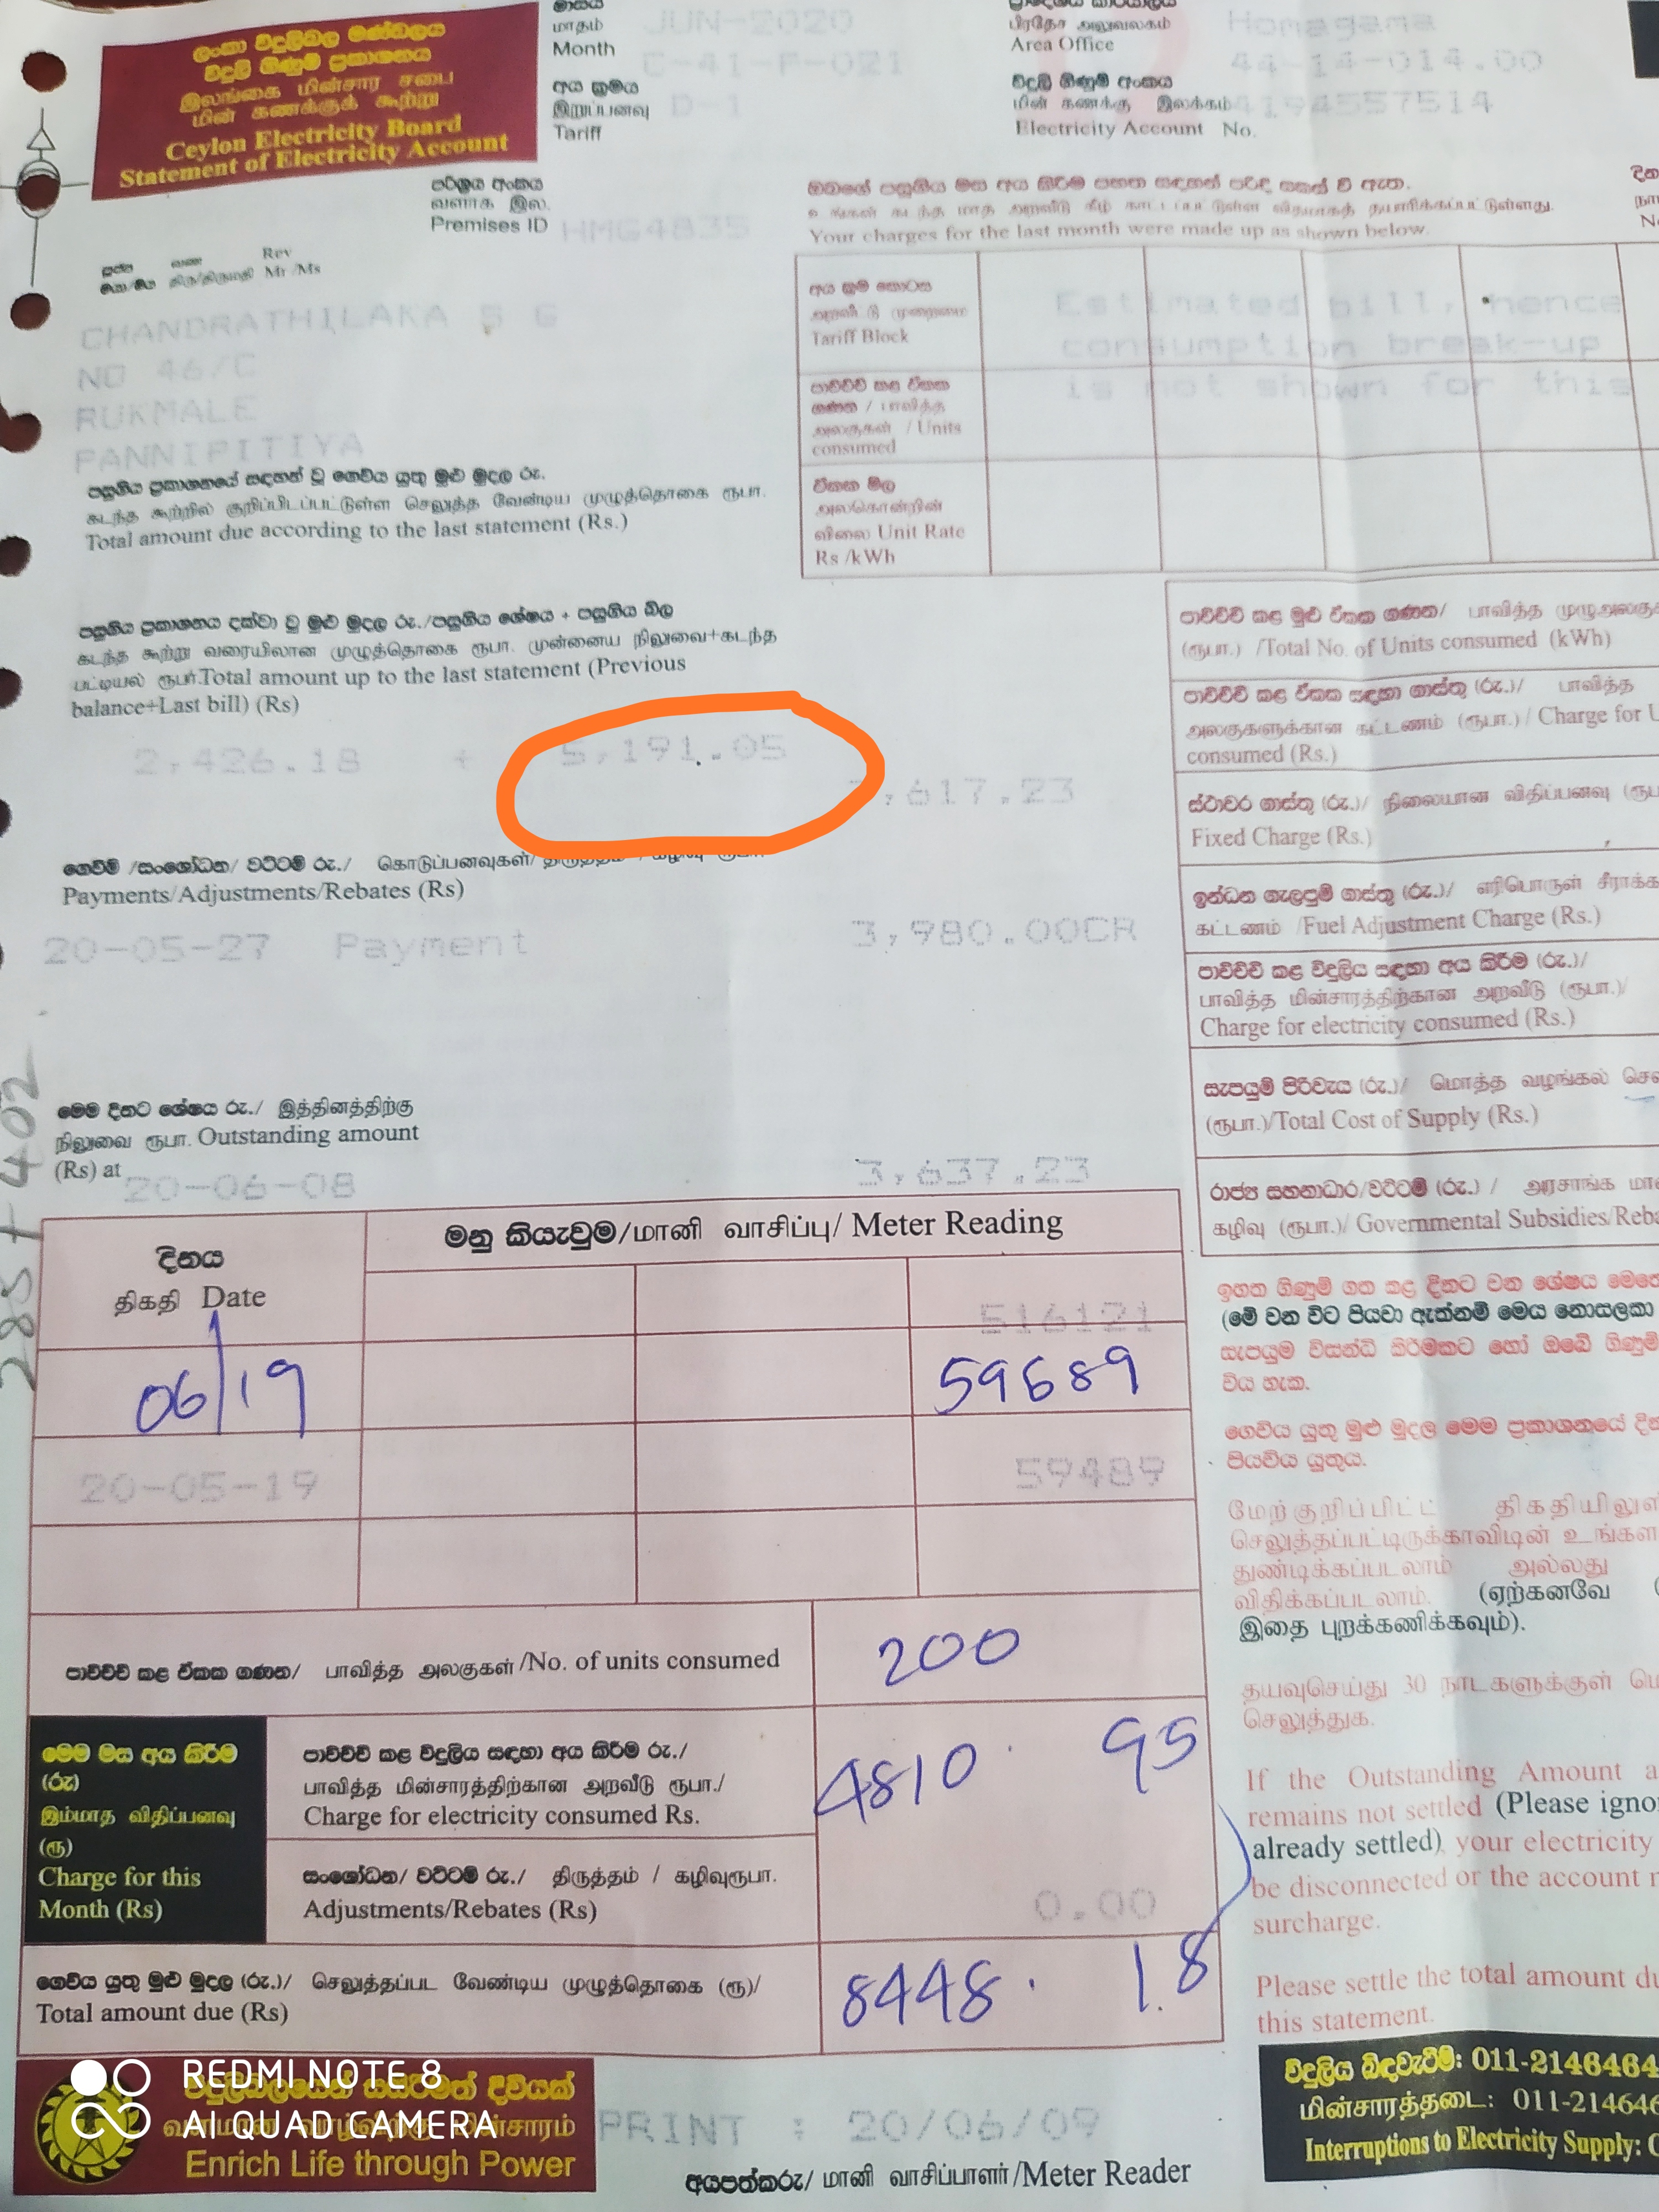 ලංකා විදුලිබල මණ්ඩලය
විදුලි ගිණුම් ප්‍රකාශනය
இலங்கை மின்சார சபை
மின் கணக்குக் கூற்று
Ceylon Electricity Board
Statement of Electricity Account
මාසය
மாதம்
Month
JUN-2020
C-41-P-021
අය ක්‍රමය
இறுப்பனவு
Tariff
D-1
ප්‍රාදේශීය කාර්යාලය
பிரதேச அலுவலகம்
Area Office
Homagama
44-14-014.00
විදුලි ගිණුම් අංකය
மின் கணக்கு இலக்கம்
Electricity Account No.
4194557514
පරිශ්‍රය අංකය
வளாக இல.
Premises ID
HMG4835
Rev
Mr /Ms
ඔබගේ පසුගිය මස අය කිරීම පහත සඳහන් පරිදි සකස් වී ඇත.
உங்கள் கடந்த மாத அறவீடு கீழ் காட்டப்பட்டுள்ள விதமாகத் தயாரிக்கப்பட்டுள்ளது.
Your charges for the last month were made up as shown below.
CHANDRATHILAKA S G
NO 46/C
RUKMALE
PANNIPITIYA
අය ක්‍රම කොටස
அறவீட்டு முறைமை
Tariff Block
Estimated bill, hence
consumption break-up
is not shown for this
පාවිච්චි කළ ඒකක
ගණන / பாவித்த
அலகுகள் / Units
consumed
ඒකක මිල
அலகொன்றின்
விலை Unit Rate
Rs /kWh
පසුගිය ප්‍රකාශනයේ සඳහන් වූ ගෙවිය යුතු මුළු මුදල රු.
கடந்த கூற்றில் குறிப்பிடப்பட்டுள்ள செலுத்த வேண்டிய முழுத்தொகை ரூபா.
Total amount due according to the last statement (Rs.)
පසුගිය ප්‍රකාශනය දක්වා වූ මුළු මුදල රු./පසුගිය ශේෂය + පසුගිය බිල
கடந்த கூற்று வரையிலான முழுத்தொகை ரூபா. முன்னைய நிலுவை+கடந்த
பட்டியல் ரூபா.Total amount up to the last statement (Previous
balance+Last bill) (Rs)
2,426.18 + 5,191.05
,617.23
ගෙවීම් /සංශෝධන/ වට්ටම් රු./ கொடுப்பனவுகள்/ திருத்தம் / கழிவு ரூபா.
Payments/Adjustments/Rebates (Rs)
20-05-27 Payment 3,980.00CR
මෙම දිනට ශේෂය රු./ இத்தினத்திற்கு
நிலுவை ரூபா. Outstanding amount
(Rs) at 20-06-08 3,637.23
285+402
පාවිච්චි කළ මුළු ඒකක ගණන/ பாவித்த முழுஅலகு
(ரூபா.) /Total No. of Units consumed (kWh)
පාවිච්චි කළ ඒකක සඳහා ගාස්තු (රු.)/ பாவித்த
அலகுகளுக்கான கட்டணம் (ரூபா.)/ Charge for U
consumed (Rs.)
ස්ථාවර ගාස්තු (රු.)/ நிலையான விதிப்பனவு (ரூப
Fixed Charge (Rs.)
ඉන්ධන ගැලපුම් ගාස්තු (රු.)/ எரிபொருள் சீராக்க
கட்டணம் /Fuel Adjustment Charge (Rs.)
පාවිච්චි කළ විදුලිය සඳහා අය කිරීම (රු.)/
பாவித்த மின்சாரத்திற்கான அறவீடு (ரூபா.)/
Charge for electricity consumed (Rs.)
සැපයුම් පිරිවැය (රු.)/ மொத்த வழங்கல் செல
(ரூபா.)/Total Cost of Supply (Rs.)
රාජ්‍ය සහනාධාර/වට්ටම් (රු.) / அரசாங்க மா
கழிவு (ரூபா.)/ Governmental Subsidies/Reba
දිනය
திகதி Date
මනු කියැවුම/மானி வாசிப்பு/ Meter Reading
516121
06/19 59689
20-05-19 59489
පාවිච්චි කළ ඒකක ගණන/ பாவித்த அலகுகள் /No. of units consumed 200
මෙම මස අය කිරීම
(රු)
இம்மாத விதிப்பனவு
(ரூ)
Charge for this
Month (Rs)
පාවිච්චි කළ විදුලිය සඳහා අය කිරීම රු./
பாவித்த மின்சாரத்திற்கான அறவீடு ரூபா./
Charge for electricity consumed Rs.
4810. 95
සංශෝධන/ වට්ටම් රු./ திருத்தம் / கழிவுரூபா.
Adjustments/Rebates (Rs)
0.00
ගෙවිය යුතු මුළු මුදල (රු.)/ செலுத்தப்பட வேண்டிய முழுத்தொகை (ரூ)/
Total amount due (Rs)
8448. 18
ඉහත ගිණුම් ගත කළ දිනට වන ශේෂය
(මේ වන විට පියවා ඇත්නම් මෙය නොසලකා
සැපයුම විසන්ධි කිරීමකට හෝ ඔබේ ගිණුම්
විය හැක.
ගෙවිය යුතු මුළු මුදල මෙම ප්‍රකාශනයේ දින
පියවිය යුතුය.
மேற்குறிப்பிட்ட திகதியிலு
செலுத்தப்பட்டிருக்காவிடின் உங்கள
துண்டிக்கப்படலாம் அல்லது
விதிக்கப்படலாம். (ஏற்கனவே
இதை புறக்கணிக்கவும்).
தயவுசெய்து 30 நாட்களுக்குள் மொ
செலுத்துக.
If the Outstanding Amount a
remains not settled (Please igno
already settled) your electricity
be disconnected or the account
surcharge.
Please settle the total amount du
this statement.
විදුලිය බිඳවැටීම්: 011-2146464
மின்சாரத்தடை: 011-214646
Interruptions to Electricity Supply:
REDMI NOTE 8
AI QUAD CAMERA
Enrich Life through Power
PRINT : 20/06/09
අයපත්කරු/ மானி வாசிப்பாளர் /Meter Reader